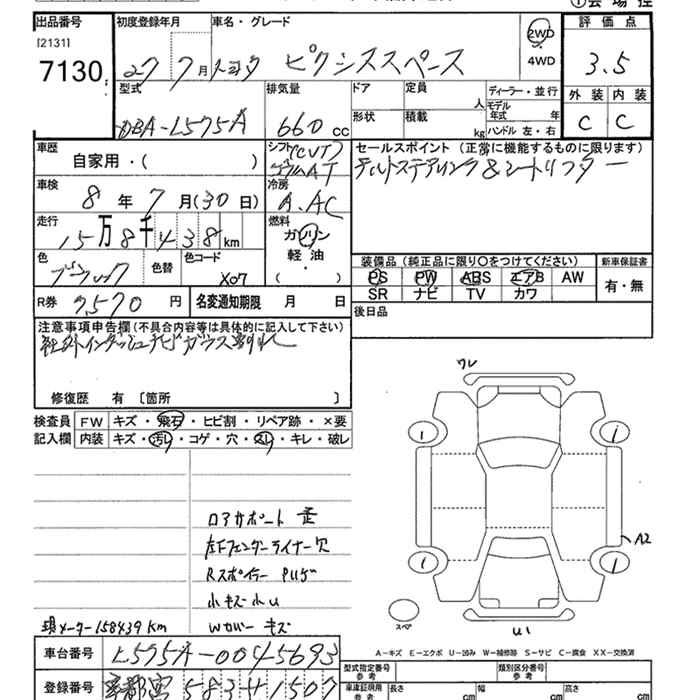 ①会場控
出品番号
初度登録年月
車名・グレード
評価点
[2131]
7130
27 7月 トヨタ ピクシススペース
2WD
・
4WD
3.5
型式
DBA-L575A
排気量
660 cc
ドア
定員
人
ディーラー・並行
形状
積載
kg
モデル年式 年
ハンドル 左・右
外装 内装
C C
車歴
自家用・( )
シフト
CVT
コラムAT
セールスポイント (正常に機能するものに限ります)
チルトステアリング&シートリフター
車検
8 年 7 月(30日)
冷房
A.AC
走行
15万8千438 km
燃料
ガソリン
・
軽油
・
( )
色
ブラック
色替
色コード
X07
R券 7,570 円
名変通知期限 月 日
装備品(純正品に限り〇をつけてください)
新車保証書
PS PW ABS エアB AW
SR ナビ TV カワ
有・無
後日品
注意事項申告欄(不具合内容等は具体的に記入して下さい)
社外インダッシュナビ ガラス割れ
修復歴 有〔箇所 〕
検査員記入欄
FW キズ・飛石・ヒビ割・リペア跡・×要
内装 キズ・汚レ・コゲ・穴・スレ・キレ・破レ
ワレ
1 1
A2
1 1
スペア
U1
ロアサポート 歪
左Fフェンダーライナー欠
Rスポイラー ハゲ
小キズ小U
現メーター158439Km
Wカバー キズ
A-キズ E-エクボ U-凹み W-補修跡 S-サビ C-腐食 XX-交換済
車台番号 L575A-0045693
登録番号 宇都宮 583 せ 1507
型式指定番号 参考
類別区分番号 参考
車庫証明用 参考
長さ cm
幅 cm
高さ cm